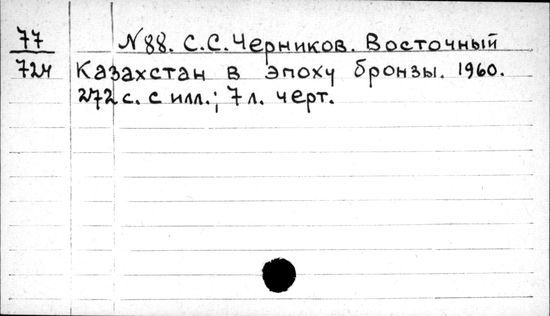 77 N 88. С.С.Черников. Восточный
724 Казахстан в эпоху бронзы. 1960.
272 с. с илл.; 7 л. черт.